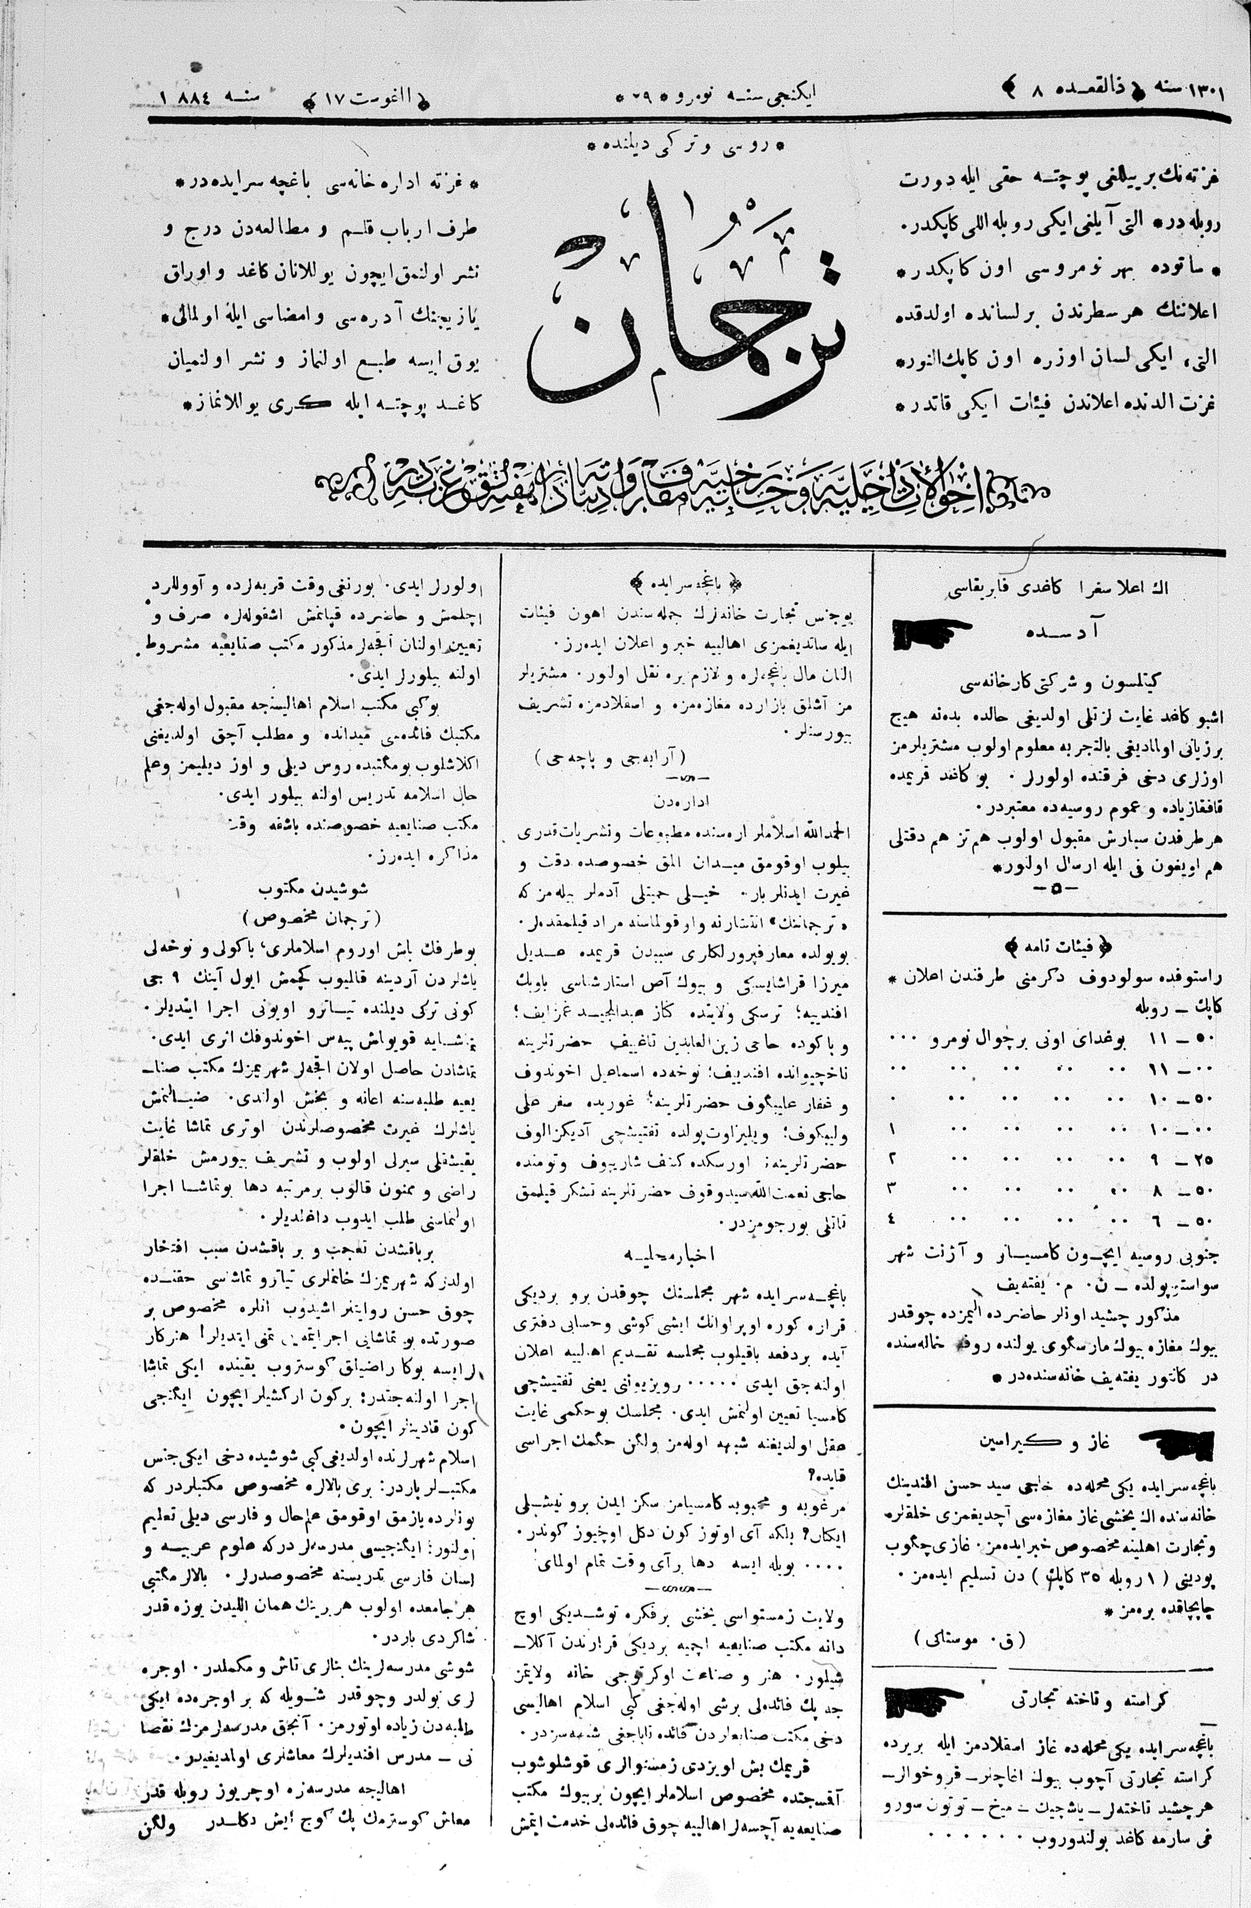 سنه ١٣٠١ ﴿ ذالقعده ٨ ﴾
ایكنجی سنه نومرو * ٢٩ *
﴿ اغوست ١٧ ﴾ سنه ١٨٨٤
* روسی و تركی دیلنده *
غزته‌نك بر ییللغی پوچته حقی ایله دورت
روبله در * التی آیلغی ایكی روبله اللی كاپكدر.
* ساتوده بهر نومروسی اون كاپكدر *
اعلاننك هر سطرندن بر لسانده اولدقده
التی، ایكی لسان اوزره اون كاپك النور *
غزت الدنده اعلاندن فیئات ایكی قاتدر *
ترجمان
* غزته اداره خانه‌سی باغچه سرایده در *
طرف ارباب قلم و مطالعه‌دن درج و
نشر اولنمق ایچون یوللانان كاغد و اوراق
یازیجینك آدره‌سی و امضاسی ایله اولمالی *
یوق ایسه طبع اولنماز و نشر اولنمیان
كاغد پوچته ایله كری یوللانماز *
اك اعلا سفرا كاغدی فابریقاسی
آدسده
كیتلسون و شركتی كارخانه‌سی
اشبو كاغد غایت لزتلی اولدیغی حالده بدنه هیچ
بر زیانی اولمادیغی بالتجربه معلوم اولوب مشتریلرمز
اوزلری دخی فرقنده اولورلر. بو كاغد قریمده
قافقازیاده و عموم روسیه‌ده معتبردر.
هر طرفدن سپارش مقبول اولوب هم تز هم دقتلی
هم اویغون فی ایله ارسال اولنور *
﴿ فیئات نامه ﴾
راستوفده سولودوف دكرمنی طرفندن اعلان *
كاپك ــ روبله
٥٠ ــ ١١ بوغدای اونی بر چوال نومرو ...
٠٠ ــ ١١ ٠٠ ٠٠ ٠٠ ٠٠ ٠٠
٥٠ ــ ١٠ ٠٠ ٠٠ ٠٠ ٠٠ ٠
٠٠ ــ ١٠ ٠٠ ٠٠ ٠٠ ٠٠ ١
٢٥ ــ ٩ ٠٠ ٠٠ ٠٠ ٠٠ ٢
٥٠ ــ ٨ ٠٠ ٠٠ ٠٠ ٠٠ ٣
٥٠ ــ ٦ ٠٠ ٠٠ ٠٠ ٠٠ ٤
جنوبی روسیه ایچون كامسیانر و آژنت شهر
سواستوپولده ــ ن. م. یفته‌یف
مذكور چشید اونلر حاضرده الیمزده چوقدر
بیوك مغازه بیوك مارسكوی یولنده روفه خاله‌سنده
در كانتور یفته‌یف خانه‌سنده در *
غاز و كیراسین
باغچه سرایده یكی محله‌ده حاجی سید حسن افندینك
خانه‌سنده اك یخشی غاز مغازه‌سی آچدیغمزی خلقلره
و تجارت اهلینه مخصوص خبر ایده‌مز. غازی چگوب
پودینی ( ١ روبله ٣٥ كاپك ) دن تسلیم ایده‌مز.
چاپچاقده بره‌مز *
( ق. موستاكی )
كراسته و تاخته تجارتی
باغچه سرایده یكی محله‌ده غاز اسقلادمز ایله بریرده
كراسته تجارتی آچوب بیوك اغاچلر ــ قروخوالر ــ
هر چشید تاخته‌لر ــ یاشچیك ــ میخ ــ توتون سورو
فی سارمه كاغد بولندوروب ......
﴿ باغچه سرایده ﴾
بوجنس تجارت خانه‌لرك جمله‌سندن اهون فیئات
ایله ساتدیغمزی اهالییه خبر و اعلان ایده‌رز.
النان مال باغچه‌لره و لازم یره نقل اولنور. مشتریلر
مز آشلق بازارده مغازه‌مزه و اسقلادمزه تشریف
بیورسنلر.
( آرابه‌جی و پاچه‌جی )
اداره‌دن
الحمدالله اسلاملر اره‌سنده مطبوعات و نشریات قدری
بیلوب اوقومق میدان المق خصوصده دقت و
غیرت ایدنلر بار. خیلی حمیتلی آدملر بیله‌مز كه
«ترجماننك» انتشارنه و ارقولماسنه مراد قیلمقده‌لر.
بو یولده معارفپرورلكاری سیبدن قریمده عدیل
میرزا قراشایسكی و بیوك آص استارشناسی باوبك
افندییه؛ ترسكی ولایتده كناز عبدالمجید غمزایف؛
و باكوده حاجی زین‌العابدین تاغییف حضرتلرینه
ناخچیوانده افندییف؛ نوخه‌ده اسماعیل اخوندوف
و غفار علیبگوف حضرتلرینه؛ غوریده سفر علی
ولیبكوف؛ ویلیزاوت‌پولده تفتیشچی آدیگزالوف
حضرتلرینه؛ اورسكده كنف شاریپوف و تومنده
حاجی نعمت‌الله سیدوقوف حضرتلرینه تشكر قیلمق
تاتلی بورجومزدر.
اخبار محلیه
باغچه سرایده شهر مجلسنك چوقدن برو بردیكی
قراره كوره اوپراوانك ایشی كوشی و حسابی دفتری
آیده بر دفعه باقیلوب مجلسه تقدیم اهالییه اعلان
اولنه‌جق ایدی ..... رویزیونی یعنی تفتیشچی
كامسیا تعیین اولنمش ایدی. مجلسك بو حكمی غایت
عقل اولدیغنه شبهه اوله‌مز ولكن حكمك اجراسی
قایده؟
مرغوبه و محبوبه كامسیامز سكز ایدن برو نیشلی
ایكان؟ بلكه آی اوتوز كون دكل اوچیوز كوندر.
.... بویله ایسه دها بر آی وقت تمام اولمای
ولایت زمستواسی یخشی بر فكره توشدیكی اوچ
دانه مكتب صنایعیه اچمیه بردیكی قرارندن آكلا
شیلور. هنر و صناعت اوكرتوجی خانه ولایتمز
جه پك فائده‌لی برشی اوله‌جغی كبی اسلام اهالیسی
دخی مكتب صنایعلردن فائده تاپاجغی شبهه‌سزدر.
قریمك بش اویزدی زمستوالری قوشلوشوب
آقمسجتده مخصوص اسلاملر ایچون بر بیوك مكتب
صنایعه‌یه آچسه‌لر اهالییه چوق فائده‌لی خدمت ایتمش
اولورلر ایدی. بورنغی وقت قریه‌لرده و آووللرد
اچلمش و حاضرده قپانمش اشقوله‌لره صرف و
تعیین اولنان اقچه‌لر مذكور مكتب صنایعیه مشروط
اولنه بیلورلر ایدی.
بو كبی مكتب اسلام اهالیسنجه مقبول اوله‌جغی
مكتبك فائده‌سی میدانده و مطلب آچق اولدیغنی
اكلاشلوب بو مكتبده روس دیلی و اوز دیلیمز و علم
حال اسلامه تدریس اولنه بیلور ایدی.
مكتب صنایعیه خصوصنده باشقه وقت
مذاكره ایده‌رز.
شوشیدن مكتوب
( ترجمان مخصوص )
بو طرفك باش اوروم اسلاملری، باكولی و نوخه‌لی
یاشلردن آردینه قالمیوب كچمش ایول آینك ٩ جی
كونی تركی دیلنده تیاترو اویونی اجرا ایتدیلر.
تماشایه قویولمش پیه‌س اخوندوفك اثری ایدی.
تماشادن حاصل اولان اقچه‌لر شهریمزك مكتب صنا
یعیه طلبه‌سنه اعانه و بخش اولندی. ضیالنمش
یاشلرك غیرت مخصوصلرندن اوتری تماشا غایت
یقیشقلی سیرلی اولوب و تشریف بیورمش خلقلر
راضی و ممنون قالوب بر مرتبه دها بو تماشا اجرا
اولنماسنی طلب ایدوب داغلدیلر.
بر باقشدن تعجب و بر باقشدن سبب افتخار
اولدر كه شهریمزك خانملری تیاترو تماشاسی حقنده
چوق حسن روایتلر اشیدوب انلره مخصوص بر
صورتده بو تماشایی اجرا ایتمه‌یی تمنی ایتدیلر! هنركار
لر ایسه بوكا راضیلق كوستروب یقینده ایكی تماشا
اجرا اولنه‌جقدر: بر كون اركشیلر ایچون ایكنجی
كون قادینلر ایچون.
اسلام شهرلرنده اولدیغی كبی شوشیده دخی ایكی جنس
مكتبلر باردر: بری بالاره مخصوص مكتبلردر كه
بونلرده یازمق اوقومق علم حال و فارسی دیلی تعلیم
اولنور: ایكنجیسی مدرسه‌لردر كه علوم عربیه و
لسان فارسی تدریسنه مخصوصدرلر. بالالر مكتبی
هر جامعده اولوب هر برینك همان اللیدن یوزه قدر
شاكردی باردر.
شوشی مدرسه‌لرینك بنالری تاش و مكملدر. اوجره
لری بولدر و چوقدر شویله كه بر اوجره‌ده ایكی
طلبه‌دن زیاده اوتورمز. آنجق مدرسه‌لرمزك نقصا
نی ــ مدرس افندیلرك معاشلری اولمدیغیدر.
اهالیجه مدرسه‌زه اوچر یوز روبله قدر
معاش كوسترمك پك كوچ ایش دكلدر ولكن